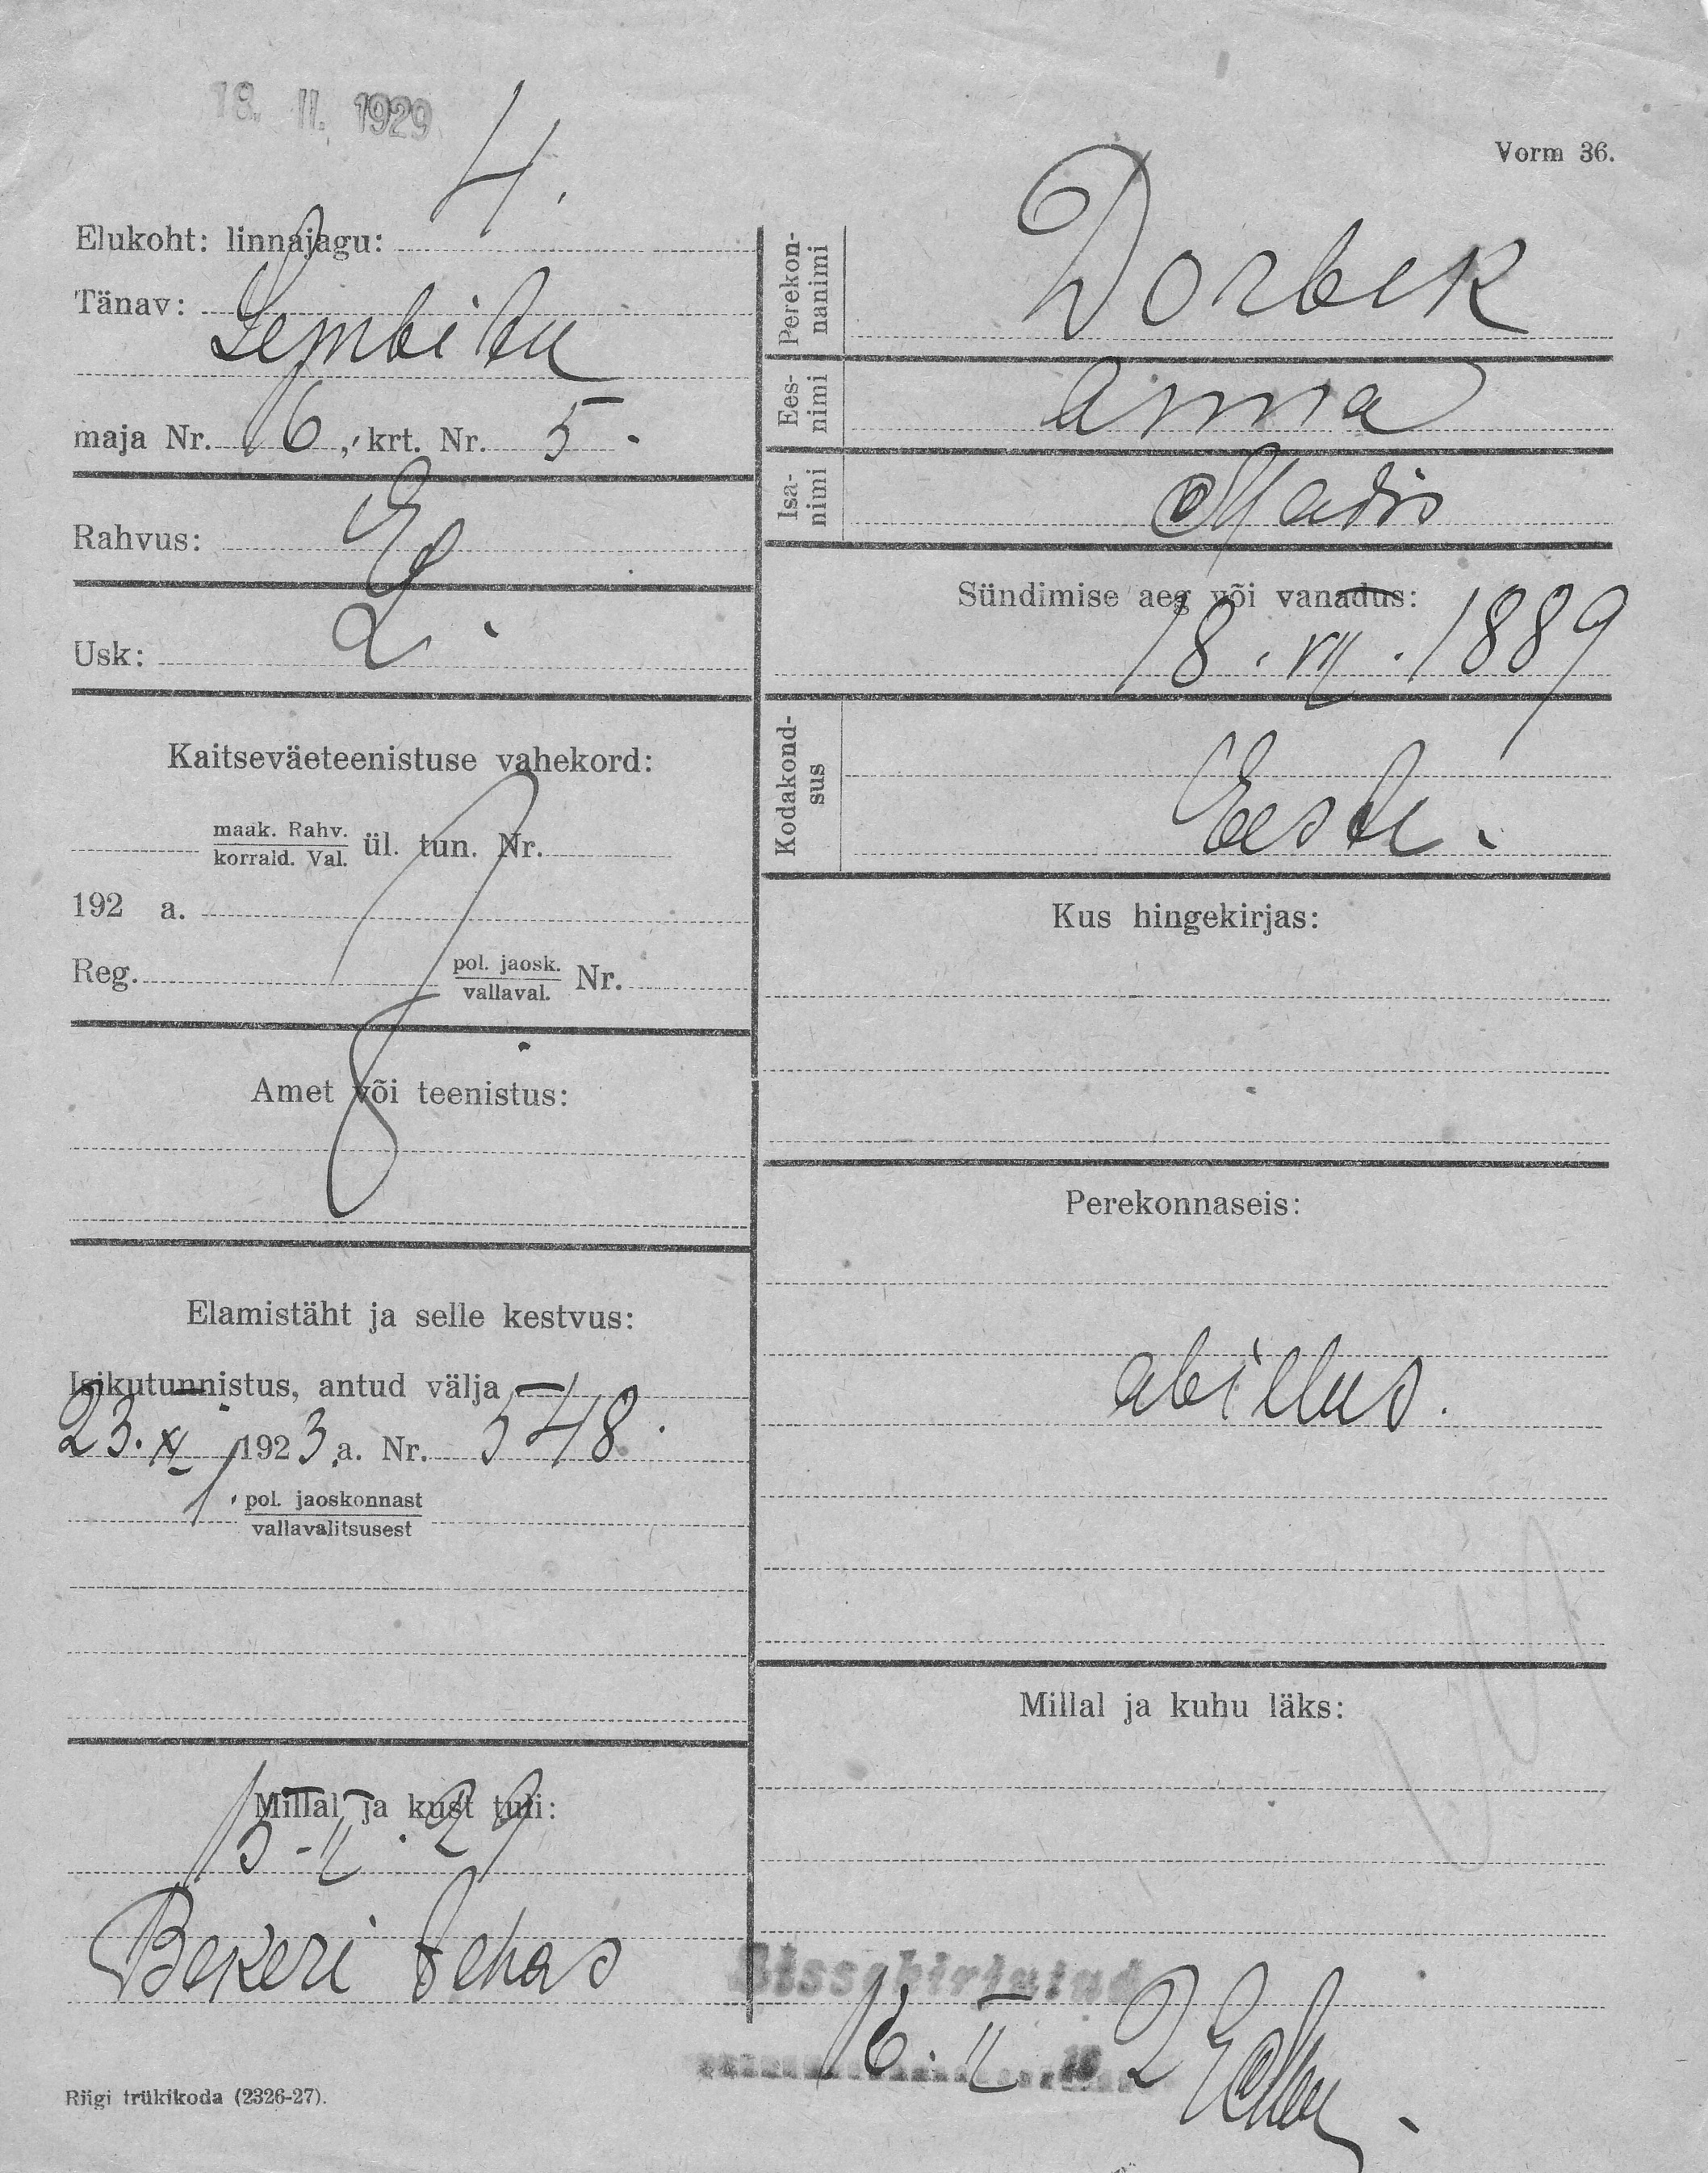 18. II. 1929
Vorm 36.
Elukoht: linnajagu: 4.
Tänav: Lembitu
maja Nr. 6, krt. Nr. 5.
Rahvus: E
Usk: L.
Kaitseväeteenistuse vahekord:
maak. Rahv.
korrald. Val. ül. tun. Nr.
192 a.
Reg. pol. jaosk.
vallaval. Nr.
Amet või teenistus:
Elamistäht ja selle kestvus:
Isikutunnistus, antud välja
23. XI 1923 a. Nr. 548.
1. pol. jaoskonnast
vallavalitsusest
Millal ja kust tuli:
15-II.29
Bekeri tehas
Riigi trükikoda (2326-27).
Perekon-
nanimi Dorbek
Ees-
nimi Anna
Isa-
nimi Madis
Sündimise aeg või vanadus:
18. VII. 1889
Kodakond-
sus Eesti.
Kus hingekirjas:
Perekonnaseis:
abielus.
Millal ja kuhu läks:
Sissekirjutud
16. II 19 29